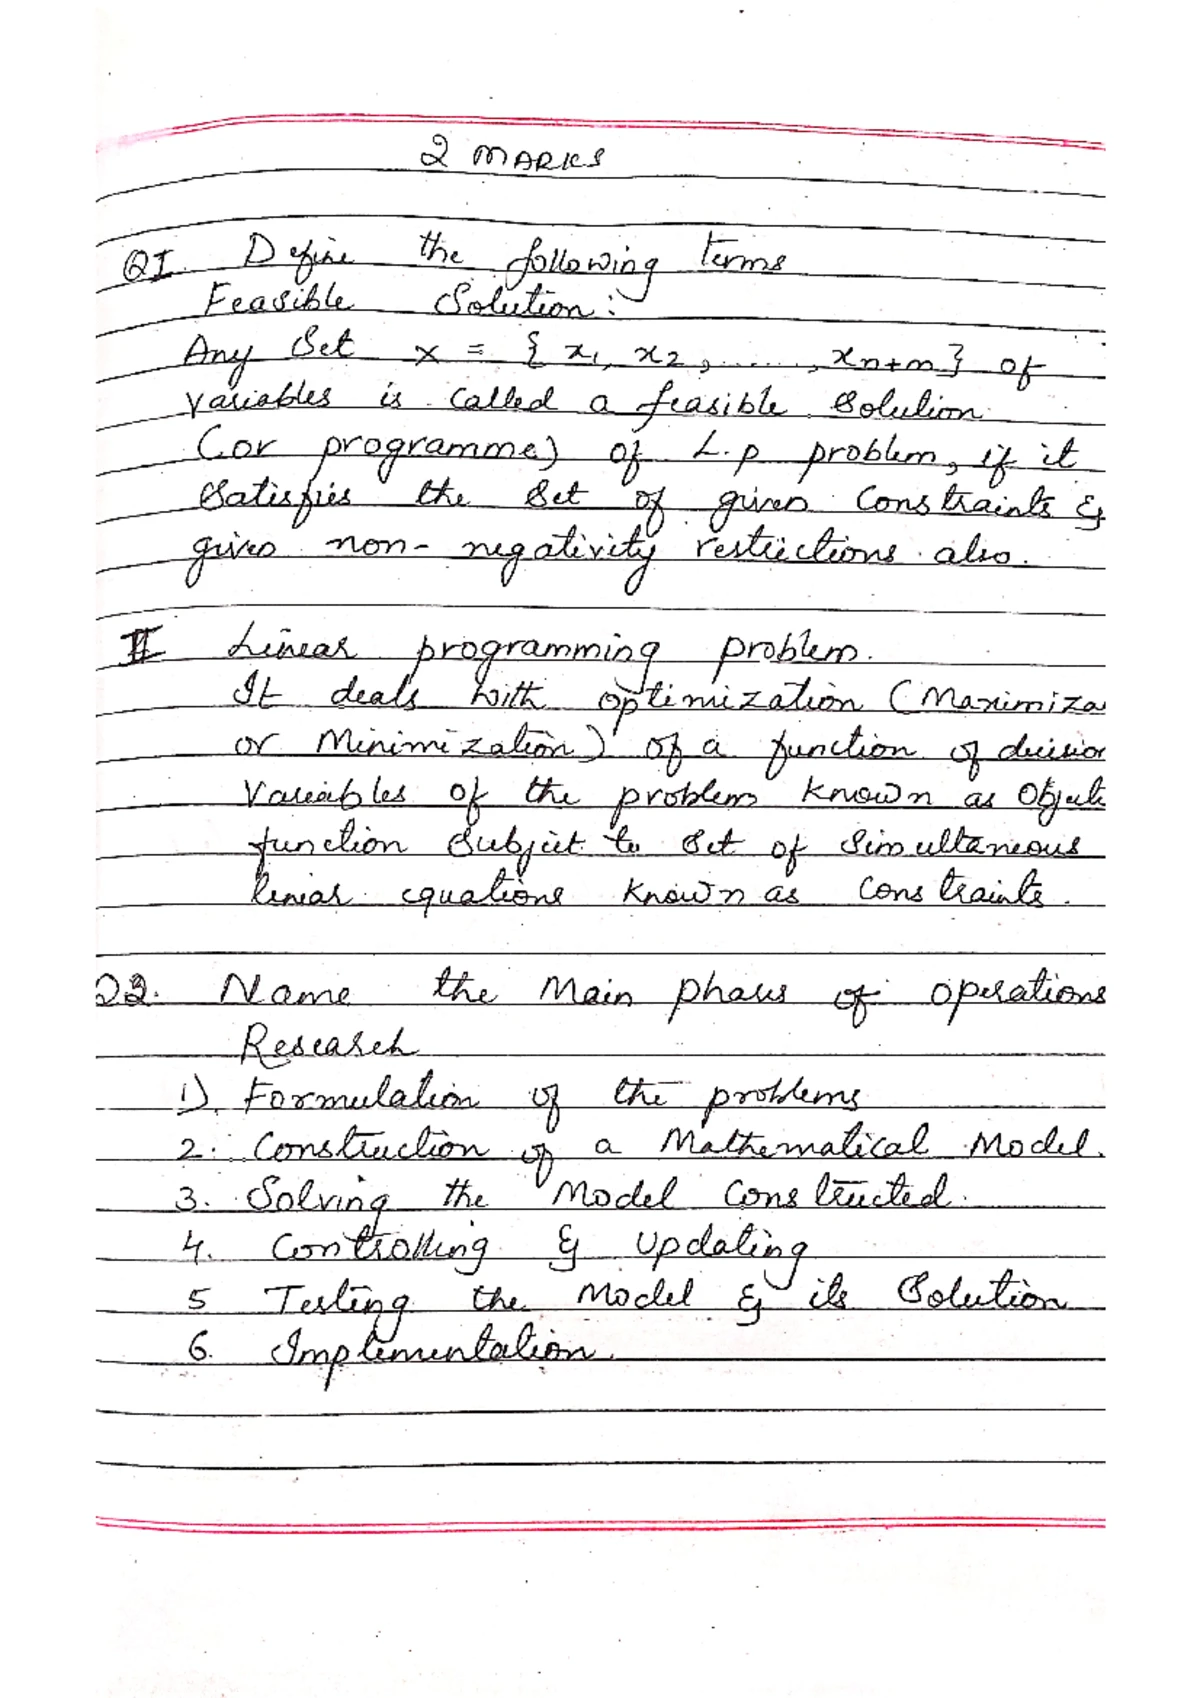 2 MARKS
QI. Define the following terms
Feasible Solution:
Any Set x = { x1, x2, ......, xn+m} of
variables is called a feasible solution
(or programme) of L.p problem, if it
satisfies the set of given constraints &
given non-negativity restrictions also.
II Linear programming problem.
It deals with optimization (Maximiza
or Minimization) of a function of decision
variables of the problem known as Objecti
function subject to set of simultaneous
linear equations known as constraints.
Q2. Name the Main phases of operations
Research
1). Formulation of the problems
2. Construction of a Mathematical Model.
3. Solving the Model constructed.
4. Controlling & updating
5 Testing the Model & its Solution
6. Implementation.